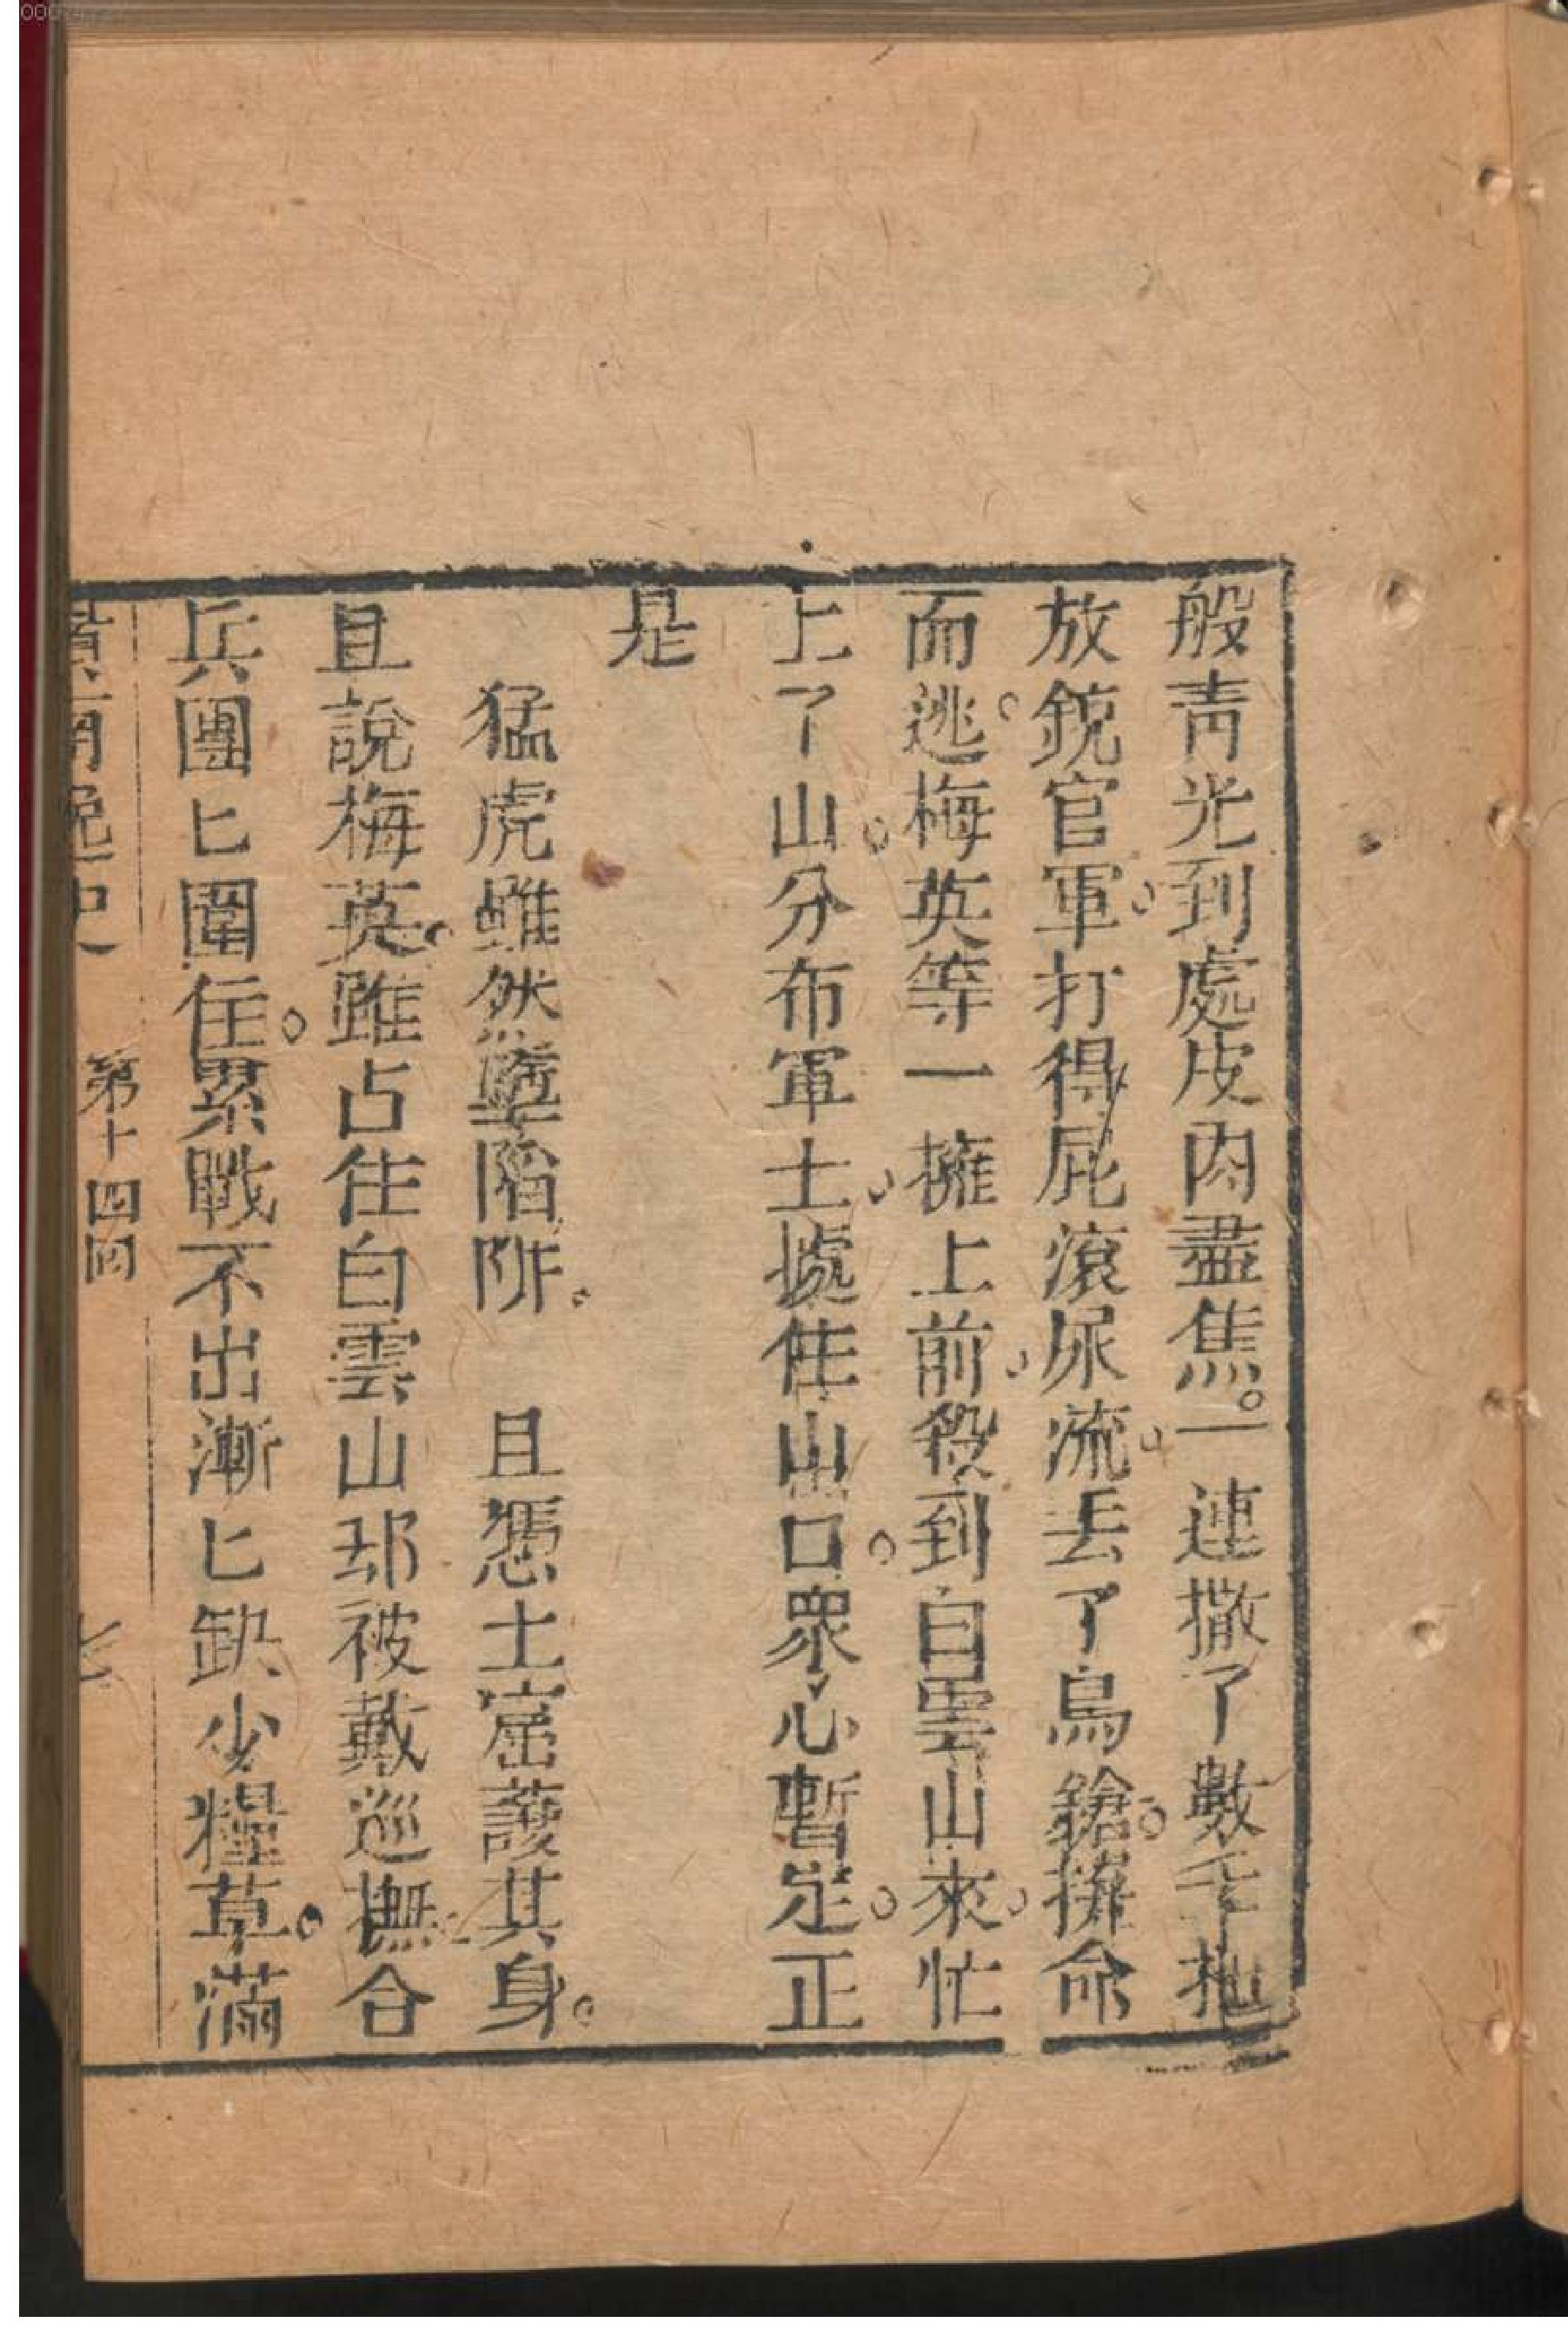 般靑光到處皮肉盡焦。一連撒了數千抛
放銃官軍打得屁滾尿流丢了鳥鎗。捹命
而逃。梅英等一擁上前殺到白雲山來忙
上了山分布軍士據住山口。衆心暫定。正
是
猛虎雖然墮陷阱。 且憑土窟護其身。
且說梅英。雖占住白雲山却被戴巡撫合
兵團匕圍住。累戰不出漸匕缺少糧草。滿
第十四囘